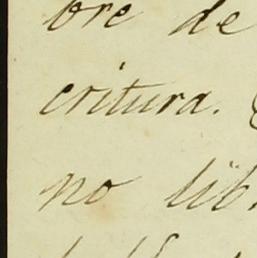 bre de
critura.
no lib.